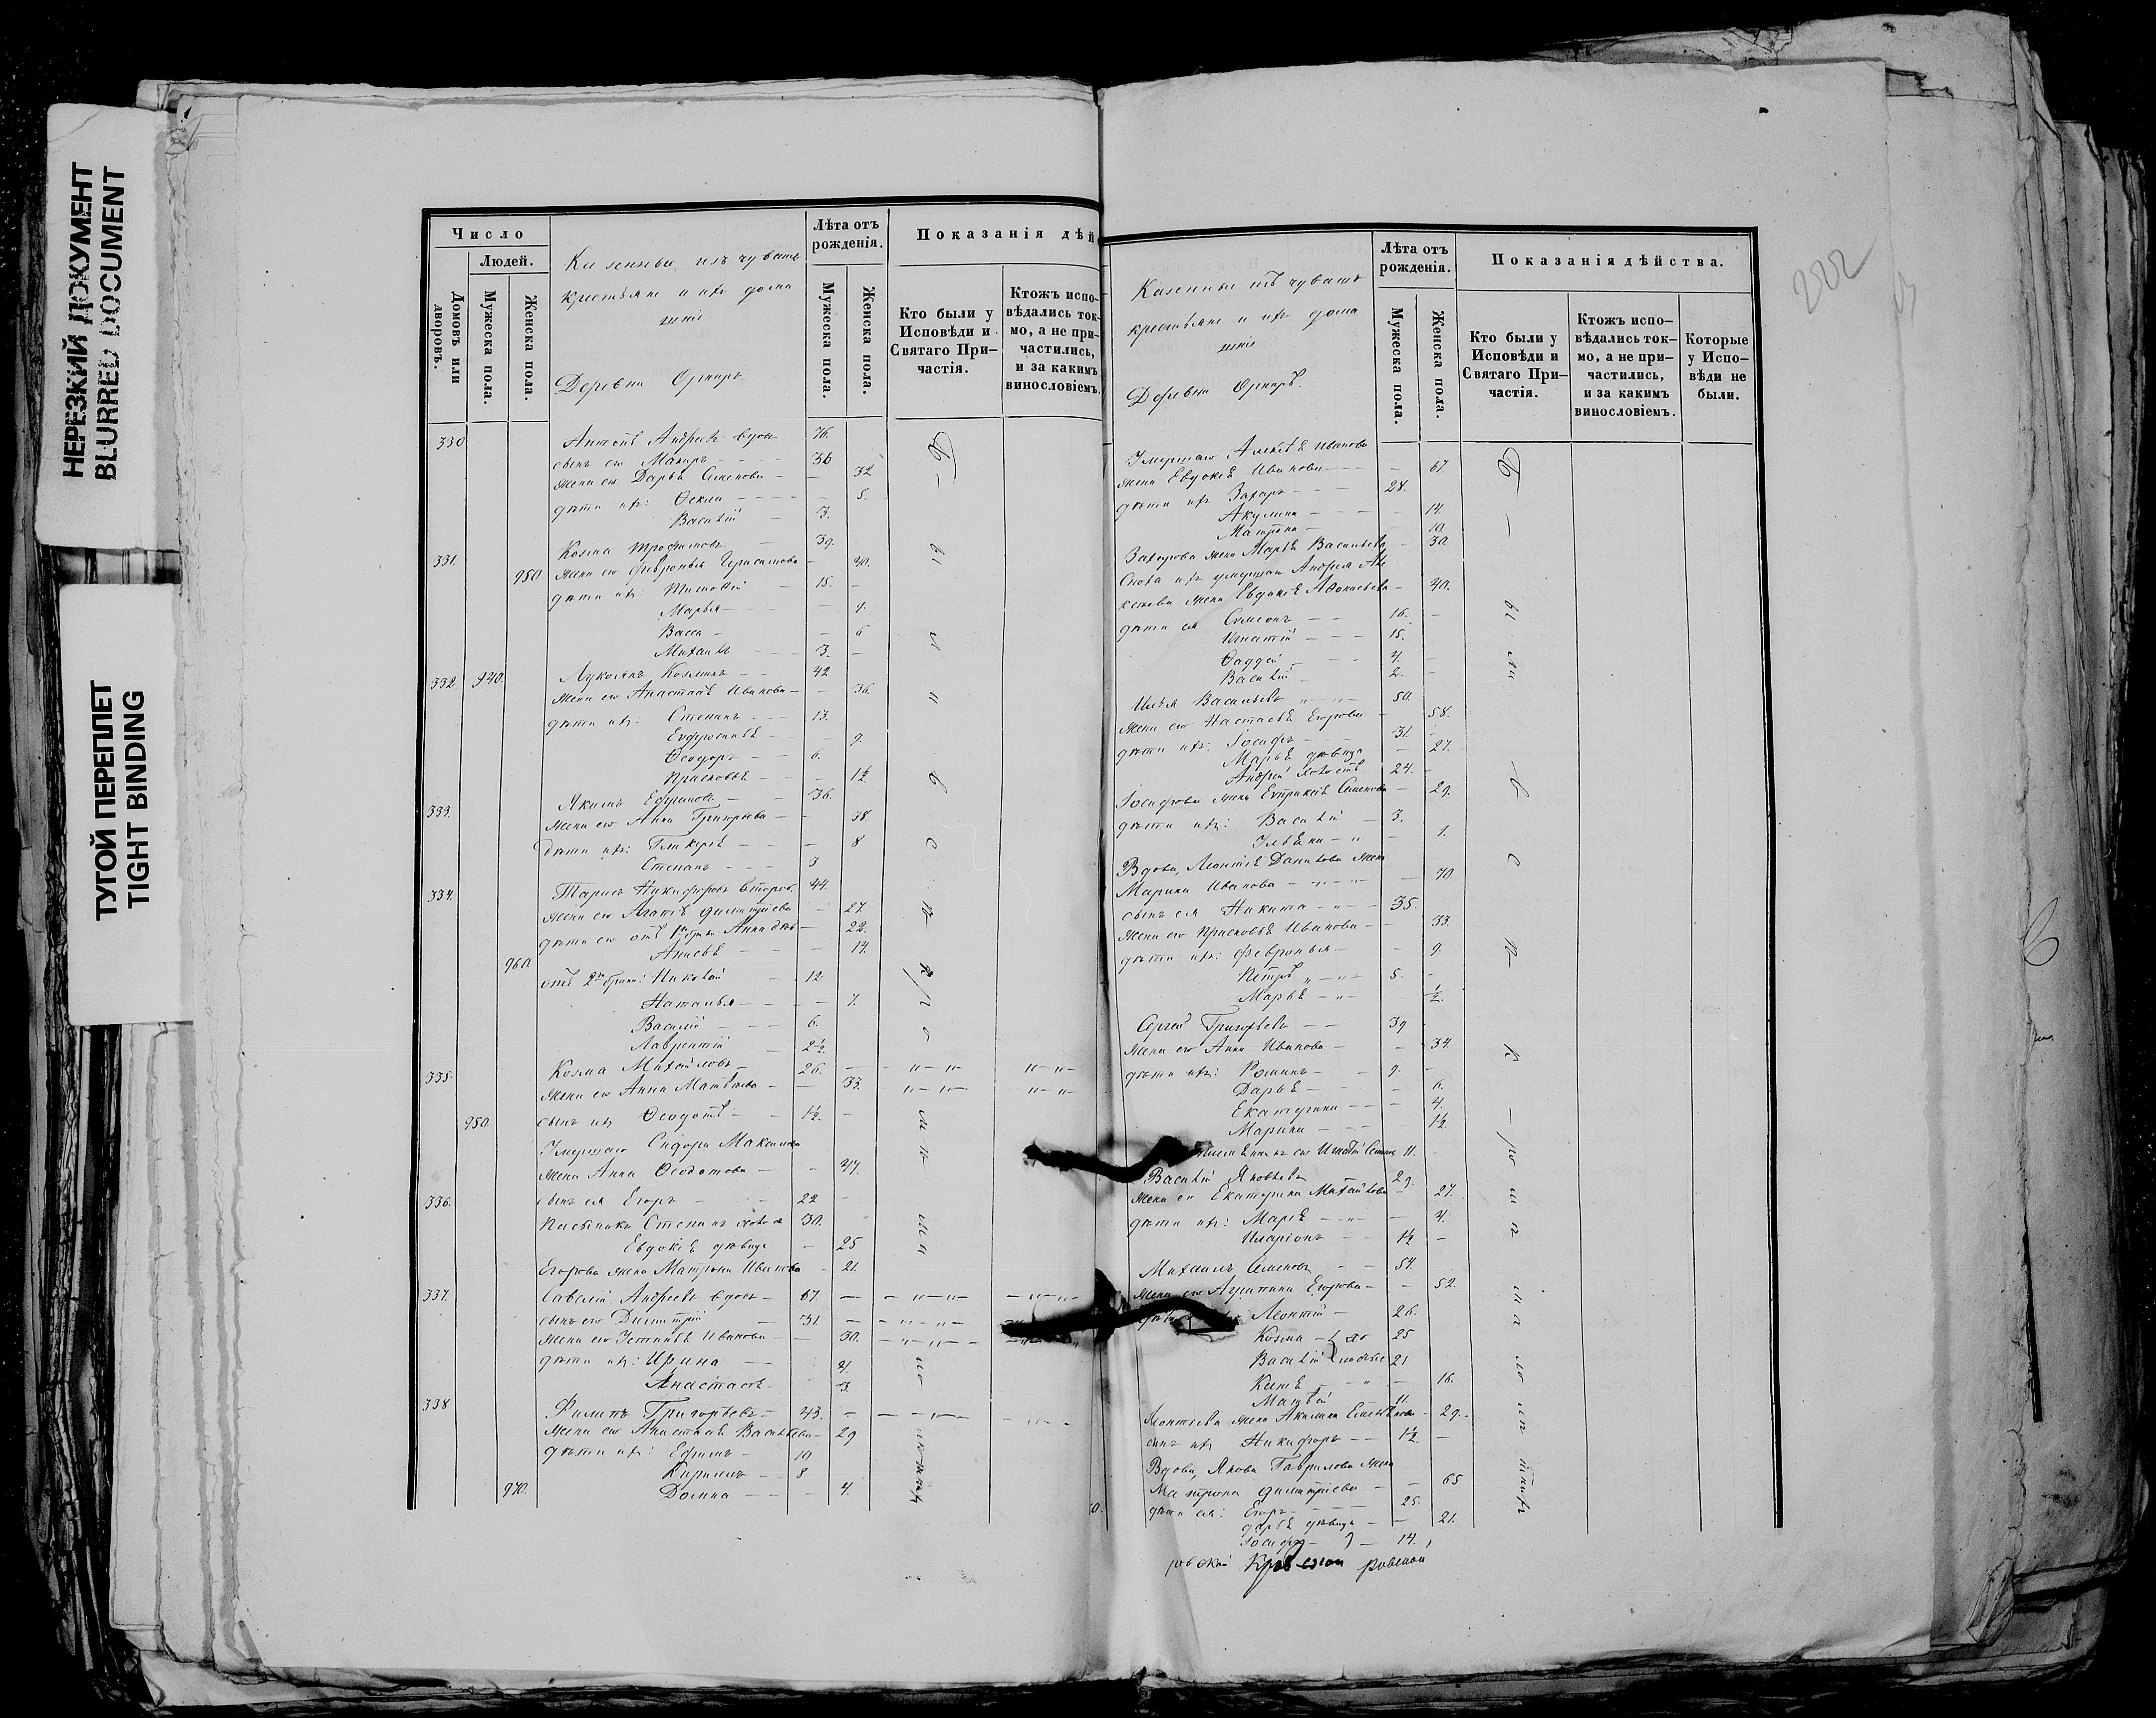 НЕРЕЗКИЙ ДОКУМЕНТ
BLURRED DOCUMENT
ТУГОЙ ПЕРЕПЛЕТ
TIGHT BINDING
Число
Людей.
Домовъ или дворовъ.
Мужеска пола.
Женска пола.
Казенные изъ чувашъ
крестьяне и ихъ дома
шніе
Деревни
Лѣта отъ рожденія.
Мужеска пола.
Женска пола.
Показанія дѣй
Кто были у Исповѣди и Святаго При-частія.
Ктожъ испо-вѣдались ток-мо, а не при-частились, и за какимъ винословіемъ.
330 Антонъ Андреевъ вдов 76.
сынъ его Макаръ 36
жена его Дарья Семенова 32
дѣти ихъ: Ѳекла 5.
Василій 3.
331. Козма Трофимовъ 39.
950 жена его Февронья Герасимова
дѣти ихъ: Тимофей 15.
Марья 9.
Васса 6
Михаилъ 3.
332 940. Лукоянъ Козминъ 42
жена его Анастасія Иванова 36.
дѣти ихъ: Степанъ 13.
Евфросинія 9.
Ѳеодоръ 6.
Прасковья 1½
333. Якимъ Ефимовъ 36.
жена его Анна Григорьева 38.
дѣти ихъ: Гликерія 8
Степанъ 3
334. Тарасъ Никифоровъ 44.
жена его Агафія Димитріева 27
дѣти его отъ 1го брака: Анна 22.
Анисья 14.
960. отъ 2го брака: Николай 12.
Наталья 7.
Василій 6.
Лаврентій 2½
335. Козма Михайловъ 26.
жена его Анна Матвѣева 33.
950 сынъ ихъ Ѳеодотъ 1½
Умершаго Сидора Максимова
жена Анна Ѳеодотова 47.
336. сынъ ея Егоръ 22
Пасынокъ Степанъ 30.
Евдокія дѣвица 25
Егорова жена Матрона Иванова 21.
337. Савелій Андреевъ вдов 67.
сынъ его Димитрій 31
жена его Устинья Иванова 30.
дѣти ихъ: Ирина 4.
Анастасія 3.
338 Филипъ Григорьевъ 43.
жена его Анастасія Васильева 29
дѣти ихъ: Ефимъ 10
Кириллъ 8
970. Домна 4.
Казенные изъ чувашъ
крестьяне и ихъ дома
шніе
Деревни
Лѣта отъ рожденія.
Мужеска пола.
Женска пола.
Показанія дѣйства.
Кто были у Исповѣди и Святаго При-частія.
Ктожъ испо-вѣдались ток-мо, а не при-частились, и за какимъ винословіемъ.
Которые у Испо-вѣди не были.
222
Умершаго Алексѣя Иванова
жена Евдокія Иванова 67.
дѣти ихъ Захаръ 28.
Акулина 14.
Матрона 10.
Захарова жена Марья Васильева 30.
Сноха ихъ умершаго Андрея Але
ксѣева жена Евдокія 40.
дѣти ея Симеонъ 16.
Игнатій 15.
Ѳаддей 4.
Василій 2.
Илья Васильевъ 50.
жена его Настасья Егорова 58.
дѣти ихъ: Іосифъ 31.
Марья дѣвица 27.
Андрей холостъ 24.
Іосифова жена Евпраксія Семенова 29.
дѣти ихъ: Василій 3.
Ульяна 1.
Вдова, Леонтія Данилова жена
Марина Иванова 70.
сынъ ея Никита 35.
жена его Прасковья Иванова 33.
дѣти ихъ: Февронья 9
Петръ 5.
Марья ½.
Сергей Григорьевъ 39
жена его Анна Иванова 34.
дѣти ихъ: Романъ 9.
Дарья 6.
Екатерина 4.
Марина 1½
Игнатій 11.
Василій Яковлевъ 29.
жена его Екатерина Михайлова 27.
дѣти ихъ: Марія 4.
Иларіонъ 1½
Михаилъ Семеновъ 54.
жена его Егорова 52.
Леонтій 26.
Козма 25
Василій 21
16.
Матвѣй 11.
Леонтіева жена 29.
сынъ ихъ Никифоръ 1½
Вдова, Якова Гаврилова жена
Матрона Димитріева 65
дѣти ея: Егоръ 25.
Дарья дѣвица 21.
Іосифъ 14.